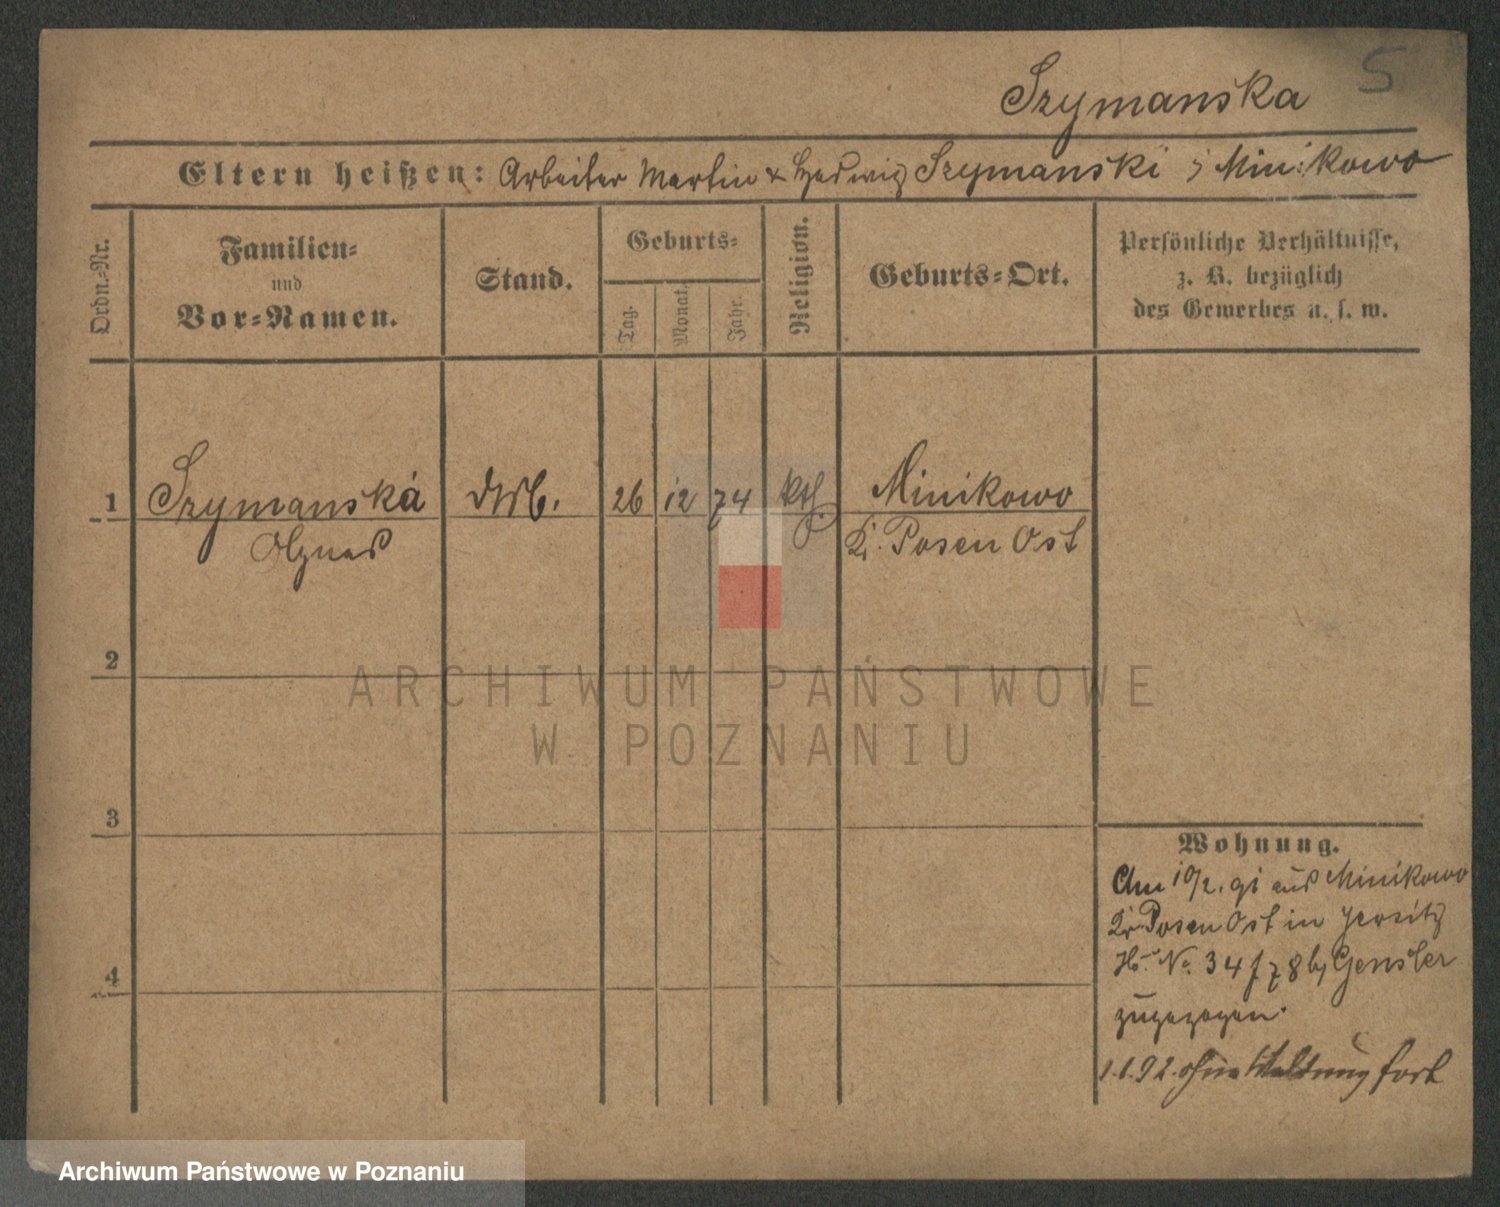 Szymanska 5
Eltern heißen: Arbeiter Martin & Hedwig Szymanski, Minikowo
Ordn.-Nr.
Familien-
und
Vor-Namen.
Stand.
Geburts-
Tag. Monat. Jahr.
Religion.
Geburts-Ort.
Persönliche Verhältnisse,
z. B. bezüglich
des Gewerbes u. s. w.
1 Szymanska 26 12 74 kth. Minikowo
Agnes Kr. Posen Ost
2
3
4
Wohnung.
Am 10/2. 91 aus Minikowo
Kr Posen Ost in Jersitz
Hs. No. 34 f 78 by Gensler
zugezogen.
1.1.92. ohne Meldung fort
ARCHIWUM PAŃSTWOWE
W POZNANIU
Archiwum Państwowe w Poznaniu